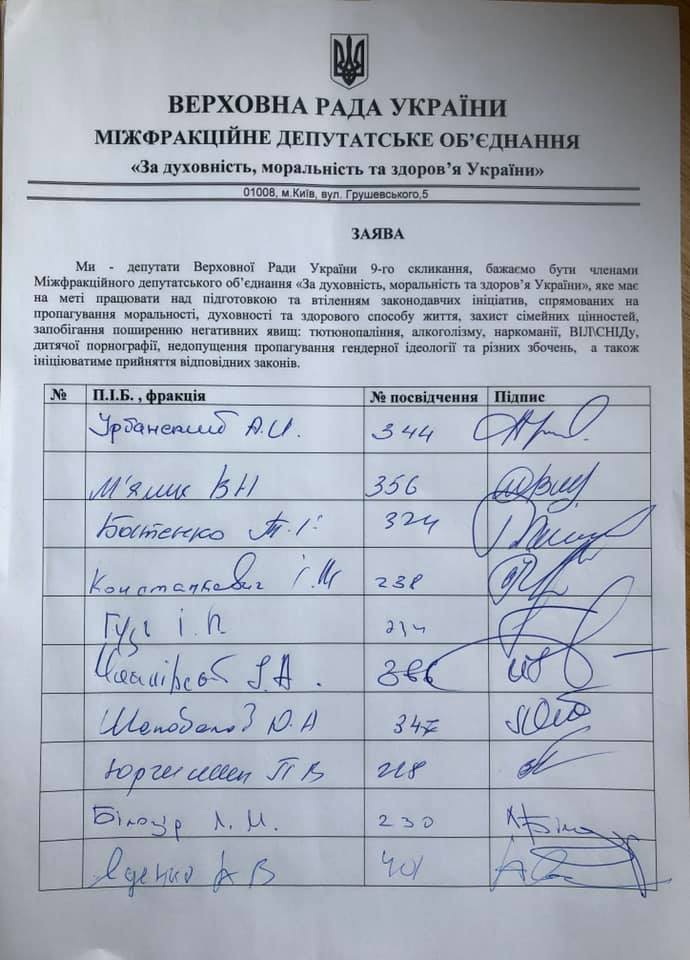 ВЕРХОВНА РАДА УКРАЇНИ
МІЖФРАКЦІЙНЕ ДЕПУТАТСЬКЕ ОБ’ЄДНАННЯ
«За духовність, моральність та здоров’я України»
01008, м.Київ, вул. Грушевського,5
ЗАЯВА
Ми - депутати Верховної Ради України 9-го скликання, бажаємо бути членами
Міжфракційного депутатського об’єднання «За духовність, моральність та здоров’я України», яке має
на меті працювати над підготовкою та втіленням законодавчих ініціатив, спрямованих на
пропагування моральності, духовності та здорового способу життя, захист сімейних цінностей,
запобігання поширенню негативних явищ: тютюнопаління, алкоголізму, наркоманії, ВІЛ\СНІДу,
дитячої порнографії, недопущення пропагування гендерної ідеології та різних збочень, а також
ініціюватиме прийняття відповідних законів.
№ П.І.Б. , фракція № посвідчення Підпис
Урбанский А.И. 344
М'ялик ВН 356
Батенко Т.І. 324
Констанкевич І.М 238
Гузь І.В.
386
Шаповалов Ю.А 347
Юрчишин П В 218
Білозір Л. М. 230
Яценко А В 401